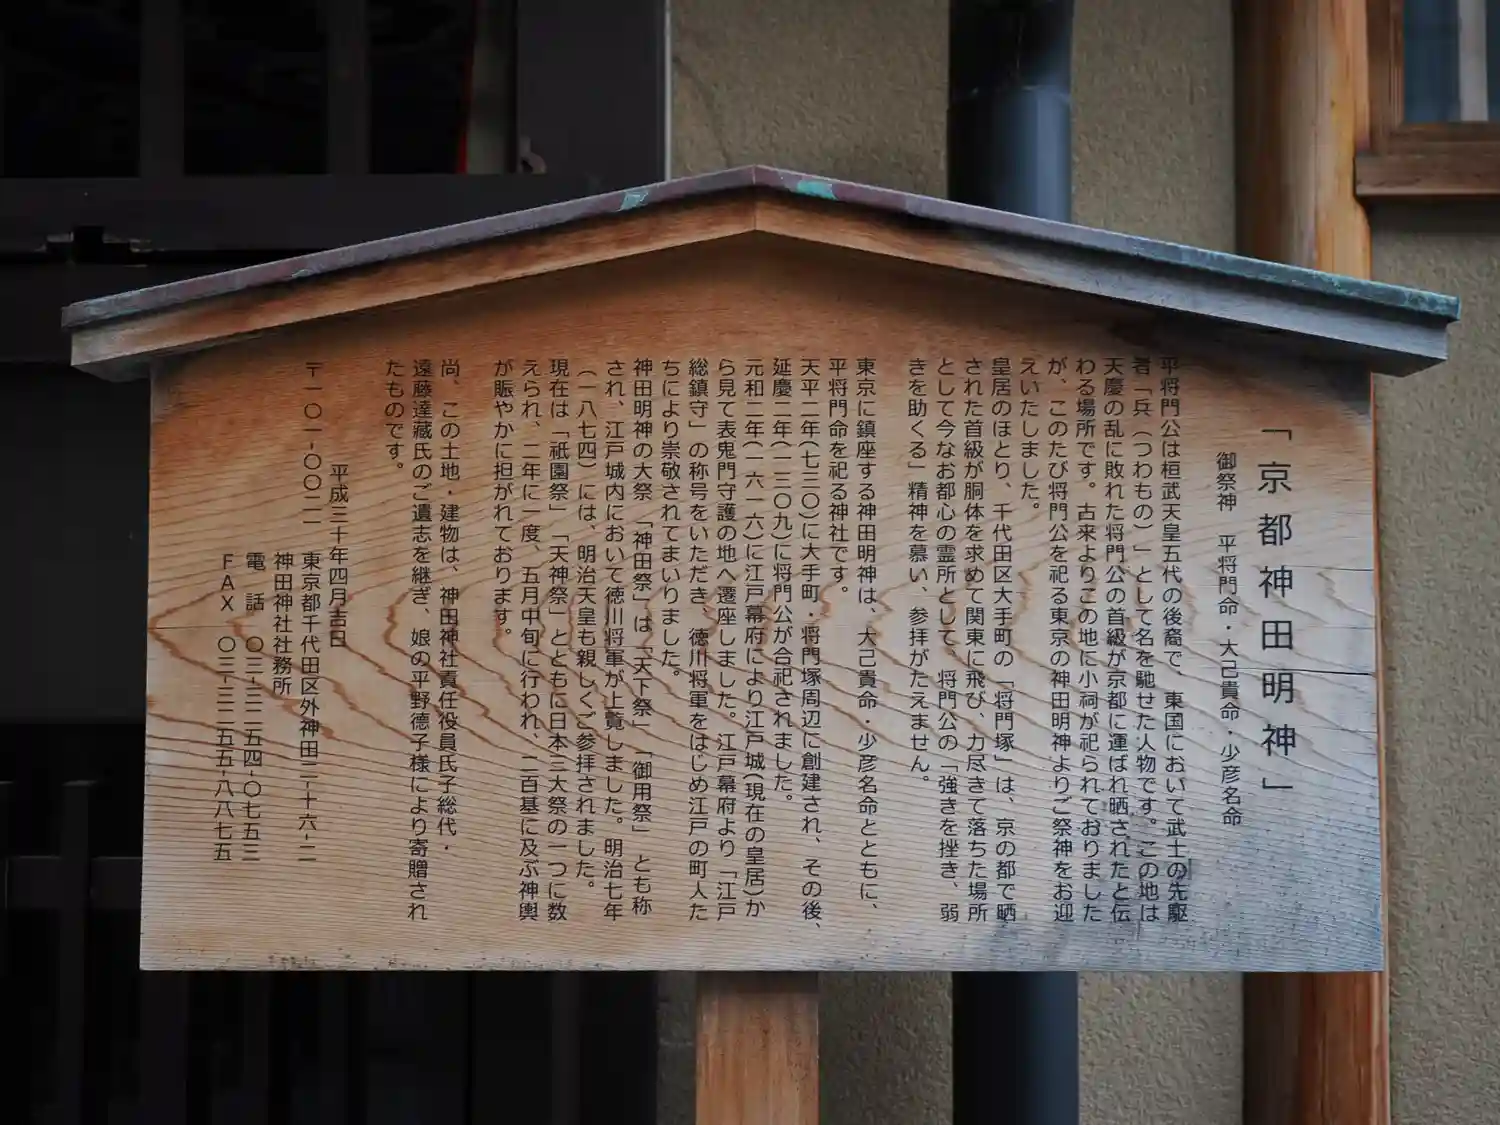 「京都神田明神」
御祭神　平将門命・大己貴命・少彦名命
平将門公は桓武天皇五代の後裔で、東国において武士の先駆
者「兵（つわもの）」として名を馳せた人物です。この地は
天慶の乱に敗れた将門公の首級が京都に運ばれ晒されたと伝
わる場所です。古来よりこの地に小祠が祀られておりました
が、このたび将門公を祀る東京の神田明神よりご祭神をお迎
えいたしました。
皇居のほとり、千代田区大手町の「将門塚」は、京の都で晒
された首級が胴体を求めて関東に飛び、力尽きて落ちた場所
として今なお都心の霊所として、将門公の「強きを挫き、弱
きを助くる」精神を慕い、参拝がたえません。
東京に鎮座する神田明神は、大己貴命・少彦名命とともに、
平将門命を祀る神社です。
天平二年(七三〇)に大手町・将門塚周辺に創建され、その後、
延慶二年(一三〇九)に将門公が合祀されました。
元和二年(一六一六)に江戸幕府により江戸城(現在の皇居)か
ら見て表鬼門守護の地へ遷座しました。江戸幕府より「江戸
総鎮守」の称号をいただき、徳川将軍をはじめ江戸の町人た
ちにより崇敬されてまいりました。
神田明神の大祭「神田祭」は「天下祭」「御用祭」とも称
され、江戸城内において徳川将軍が上覧しました。明治七年
（一八七四）には、明治天皇も親しくご参拝されました。
現在は「祇園祭」「天神祭」とともに日本三大祭の一つに数
えられ、二年に一度、五月中旬に行われ、二百基に及ぶ神輿
が賑やかに担がれております。
尚、この土地・建物は、神田神社責任役員氏子総代・
遠藤達藏氏のご遺志を継ぎ、娘の平野德子様により寄贈され
たものです。
平成三十年四月吉日
〒一〇一-〇〇二一　東京都千代田区外神田二-十六-二
神田神社社務所
電　話　〇三-三二五四-〇七五三
ＦＡＸ　〇三-三二五五-八八七五